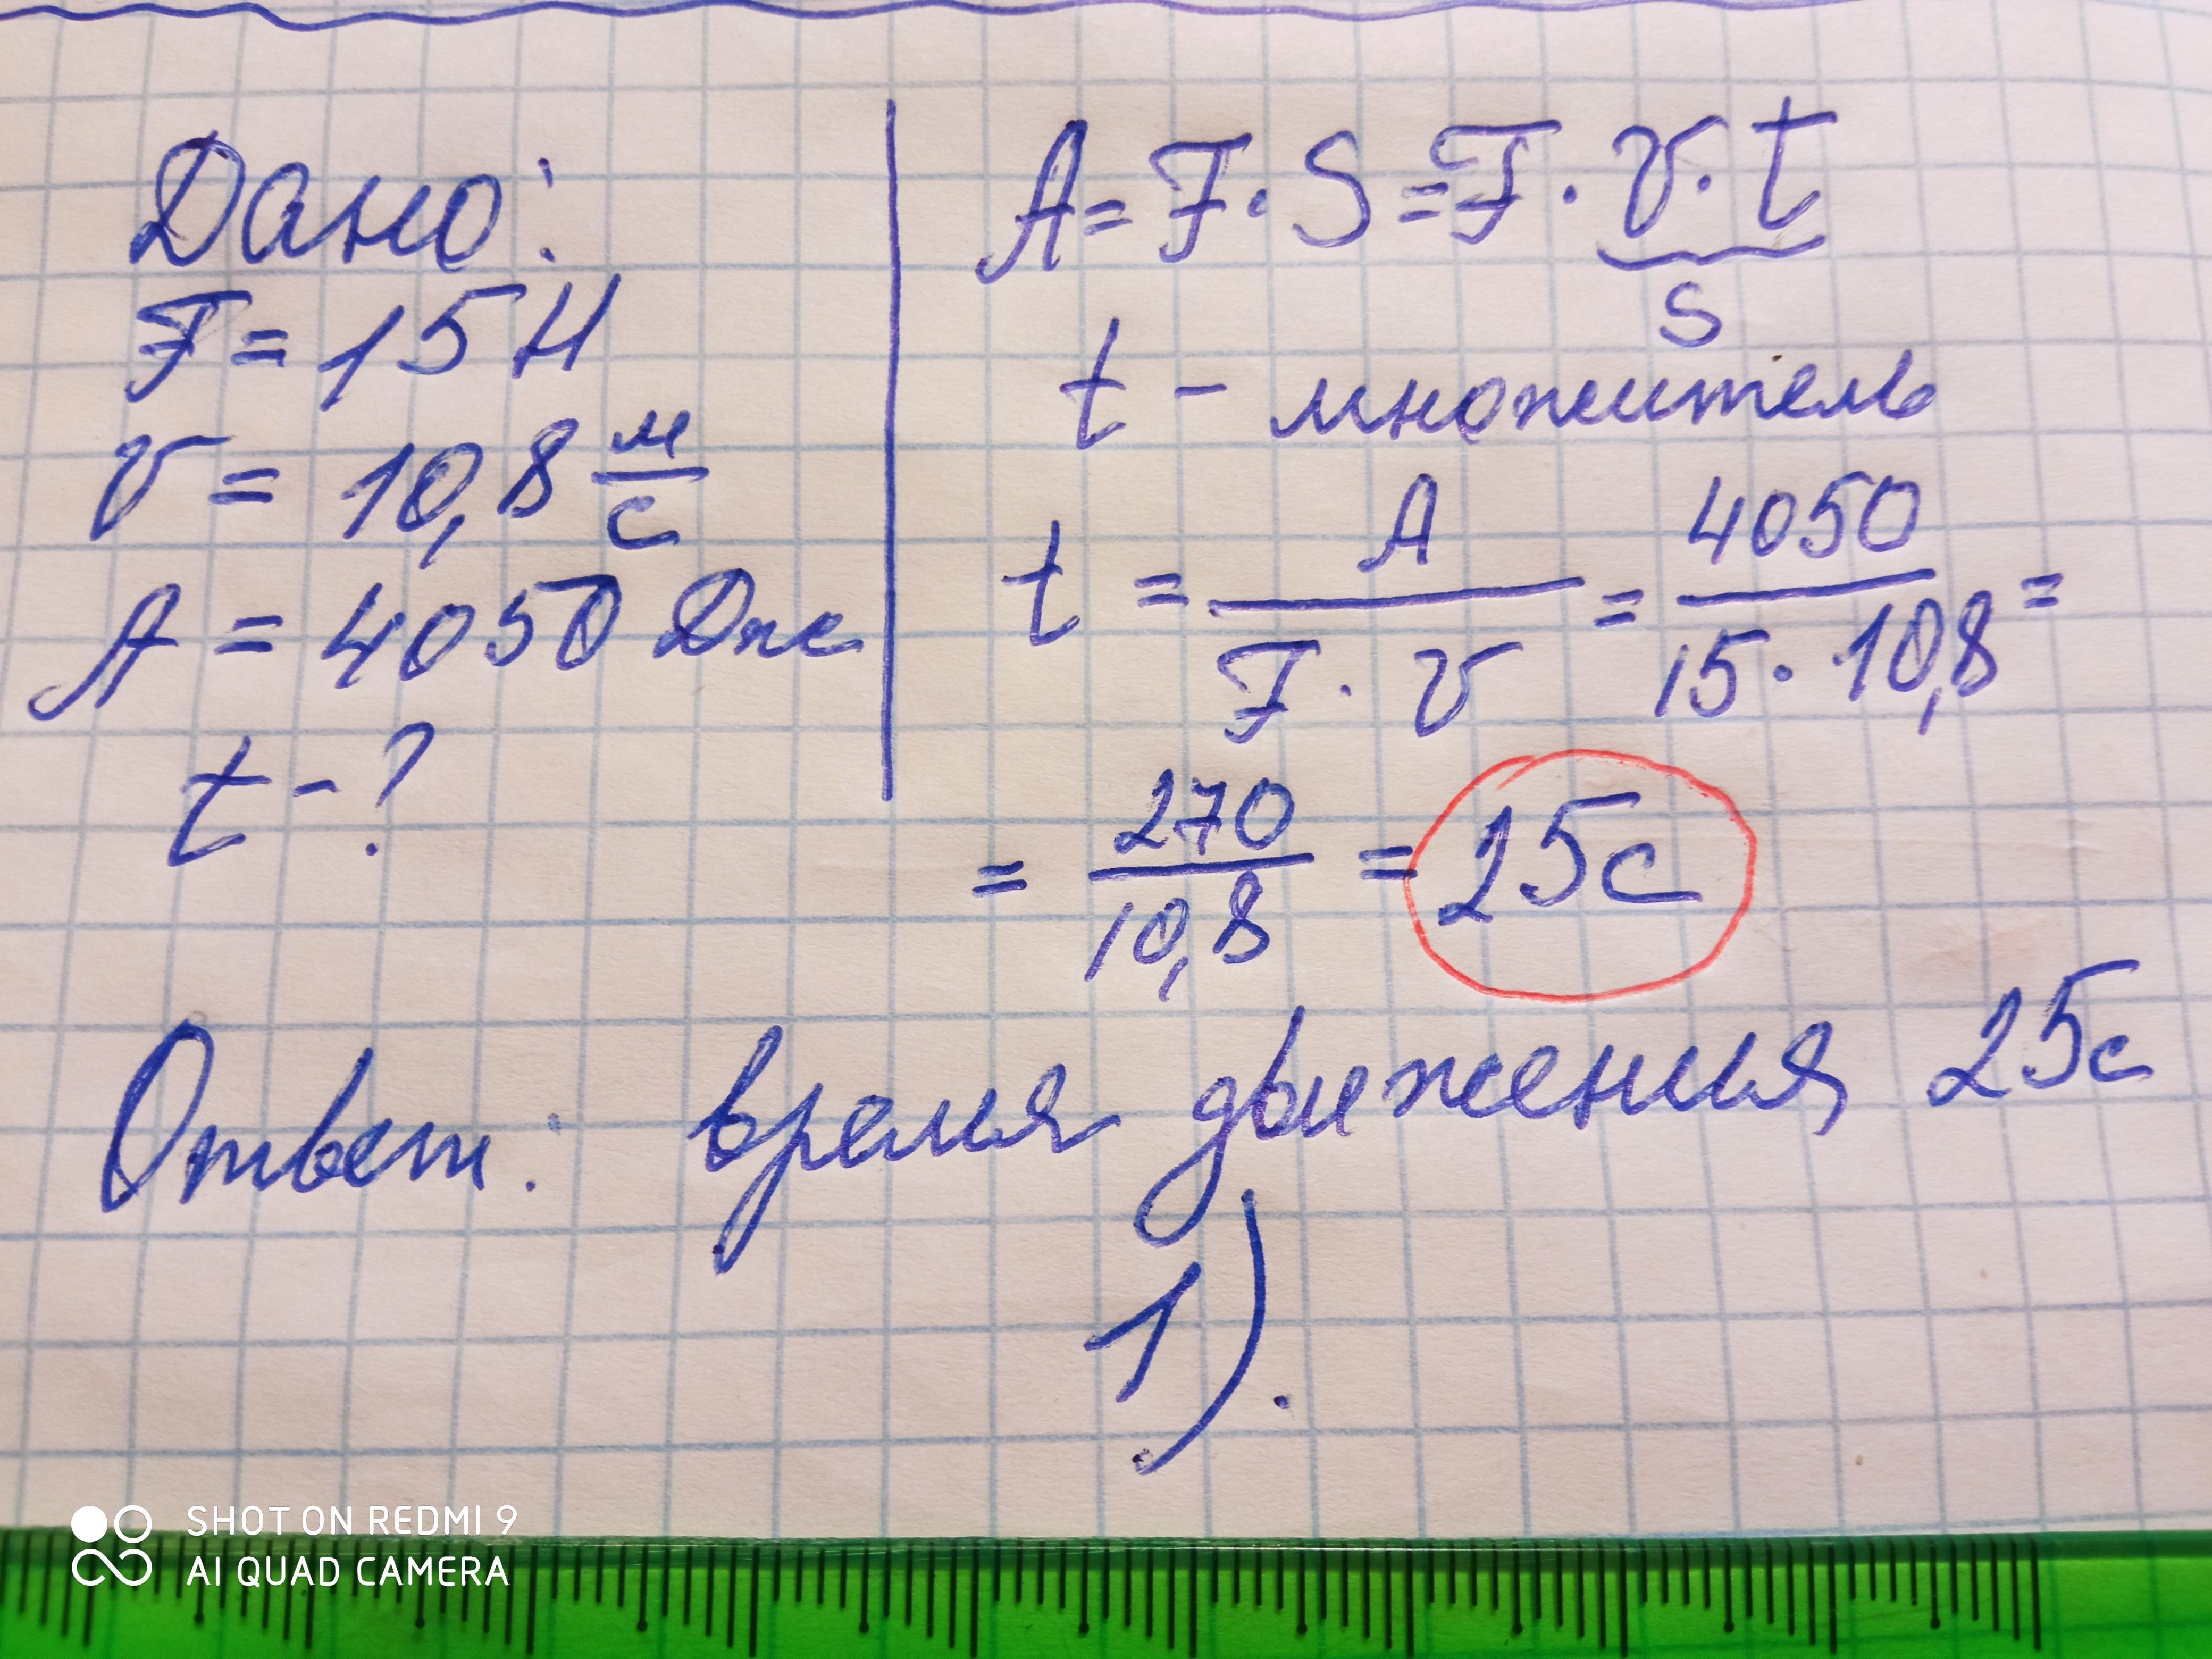 Дано:
F = 15 Н
v = 10,8 м/с
A = 4050 Дж
t - ?
A = F · S = F · v · t
S
t - множитель
t = A / F · v = 4050 / 15 · 10,8 =
= 270 / 10,8 = 25 с
Ответ: время движения 25 с
1).
SHOT ON REDMI 9
AI QUAD CAMERA